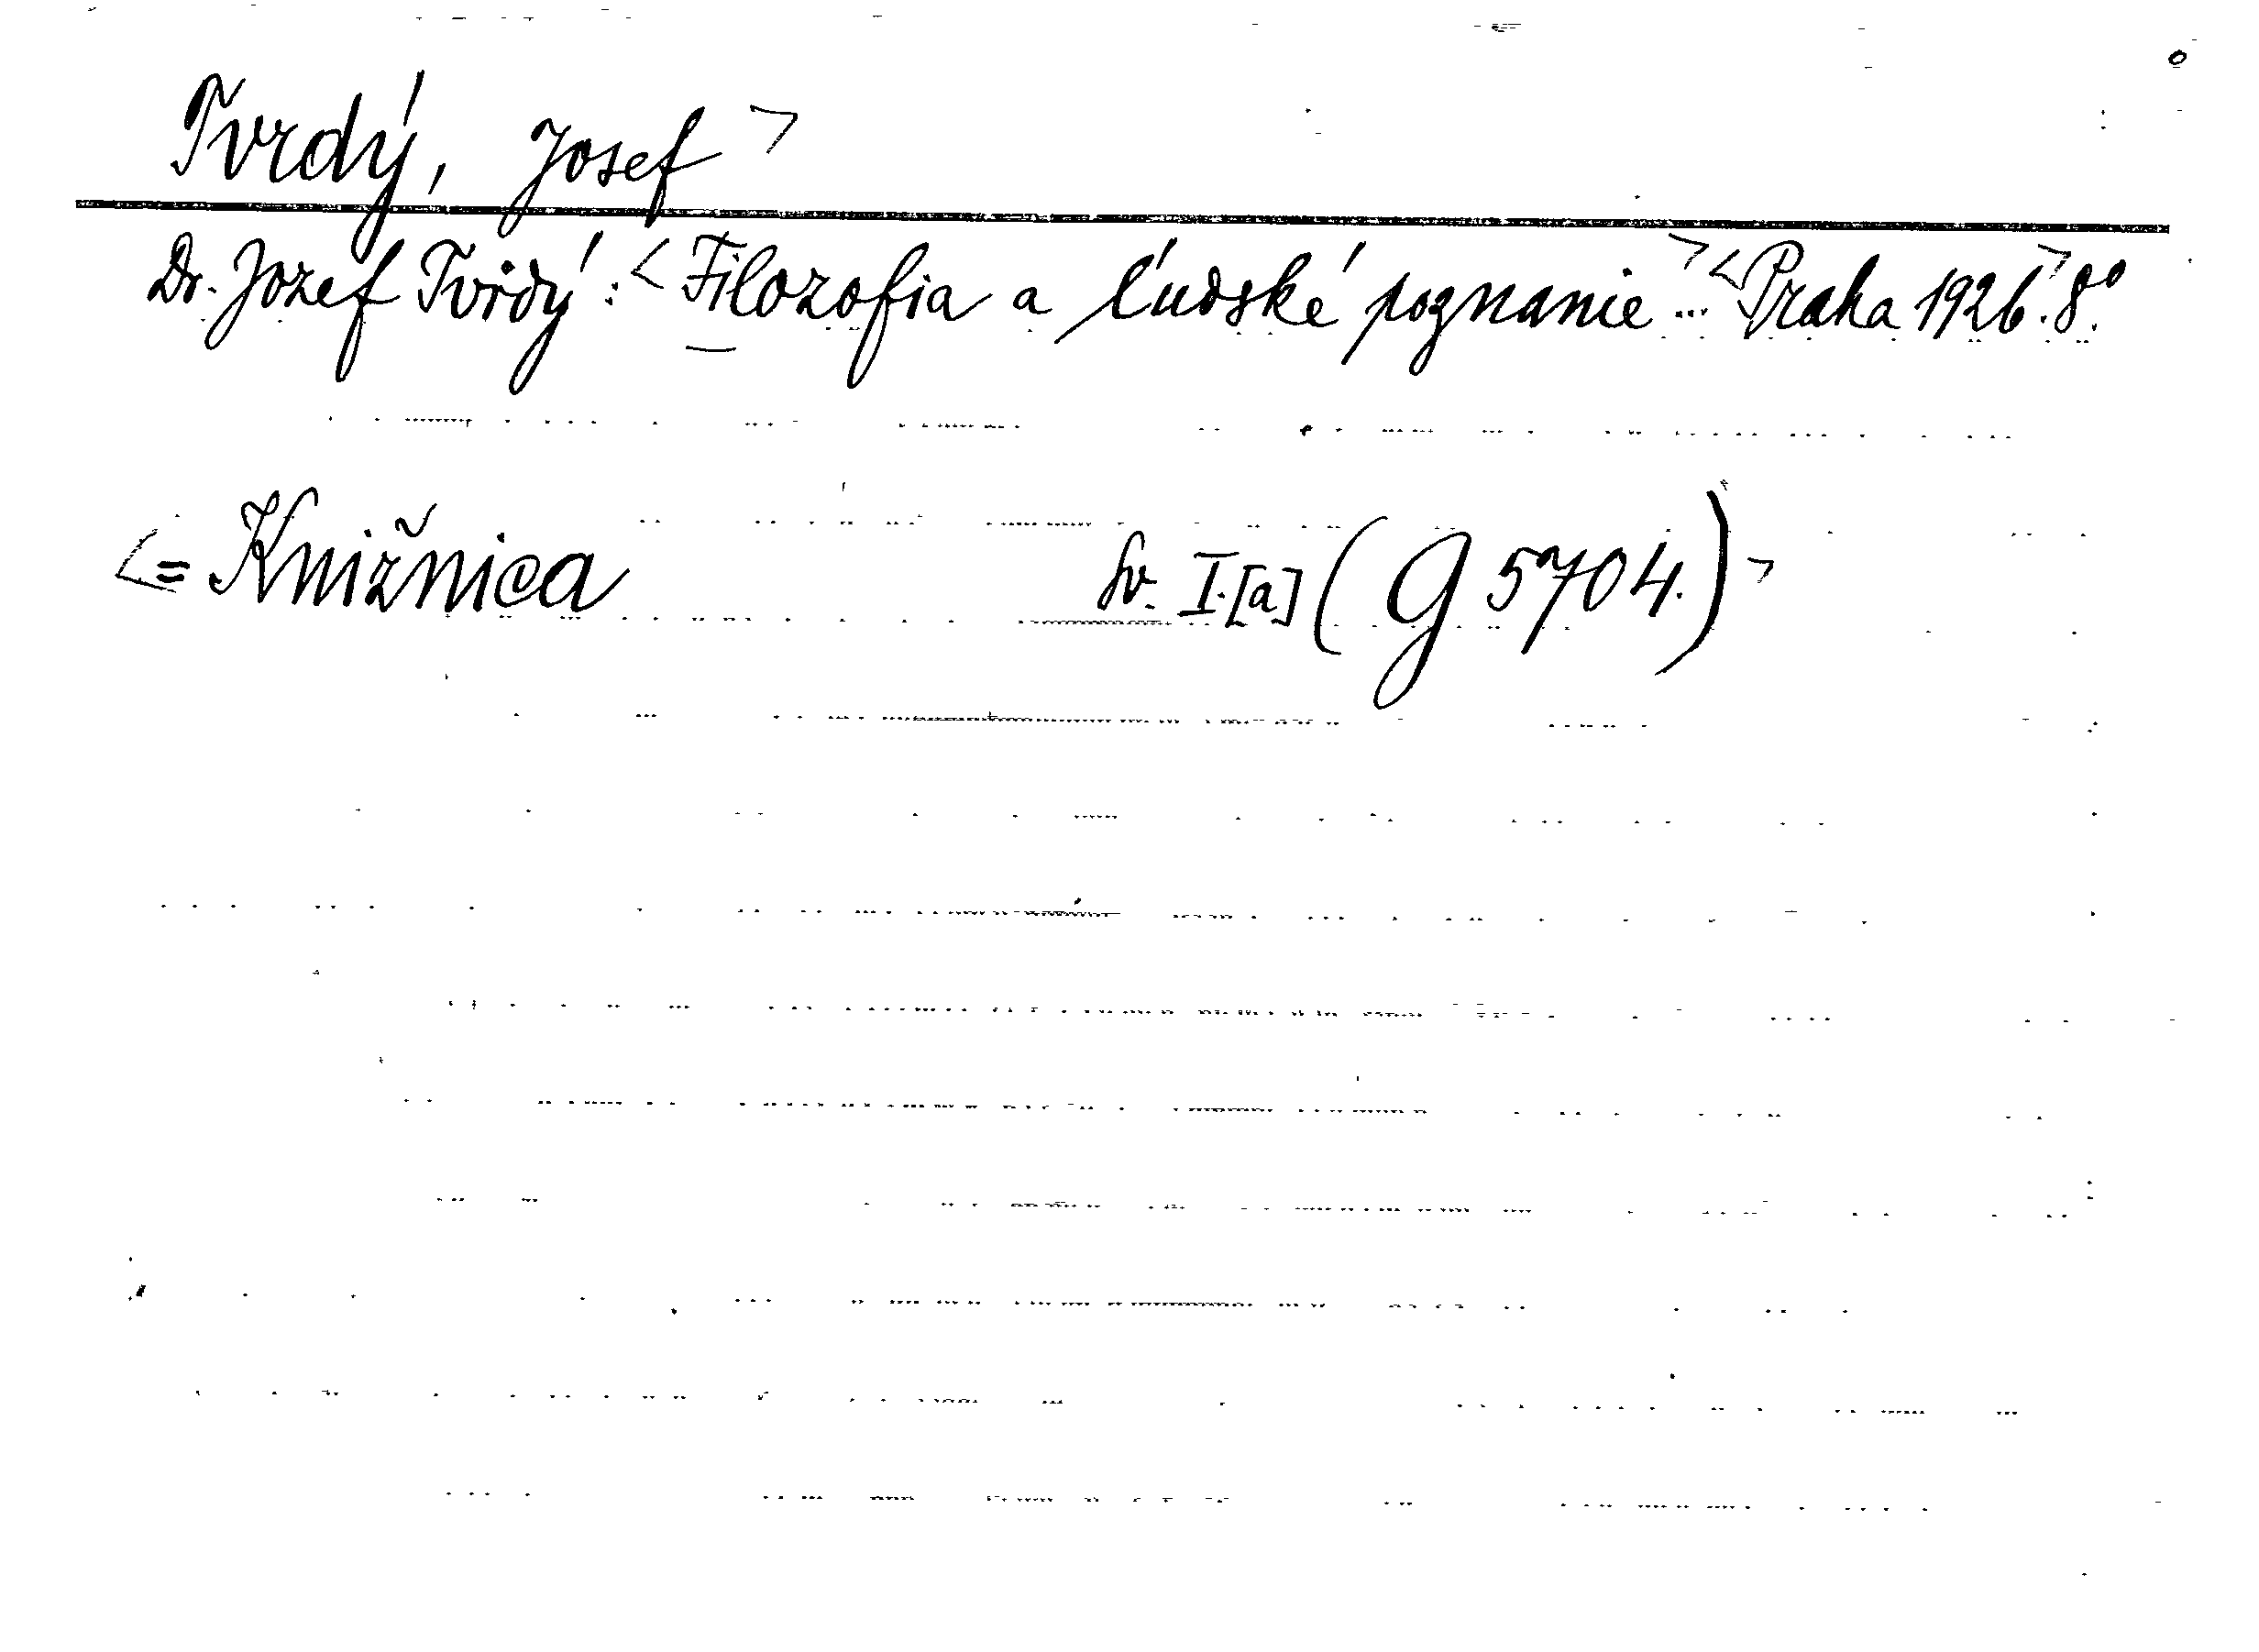 Tvrdý, Josef >
Dr. Jozef Tvrdý: < Filozofia a ľudské poznanie ... > < Praha 1926. > 8°.
< = Knižnica Sv. I. [a] (G 5704.) >